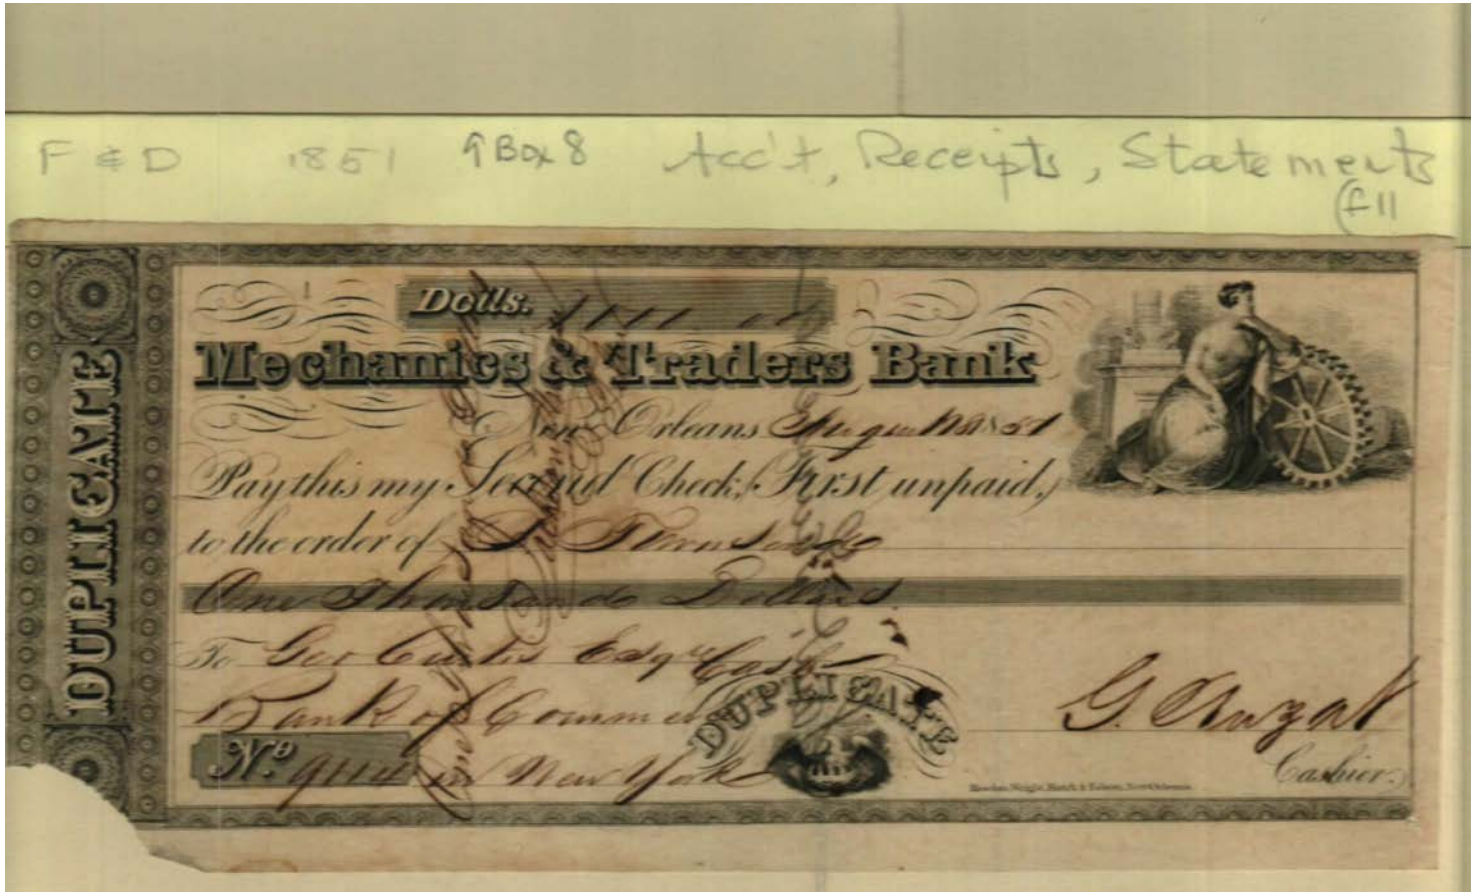 F & D 1851 9 Box 8 Acc't, Receipts, Statements
(f 11
DUPLICATE
Dolls. 1000. 00
Mechanics & Traders Bank
New Orleans 1851
Pay this my Second Check, (First unpaid,)
to the order of
One Thousand Dollars
To Geo Curtis Esqre Cash
Bank of Commerce
DUPLICATE
No 9114 in New York
Cashier.
Rawdon, Wright, Hatch & Edson, New Orleans.